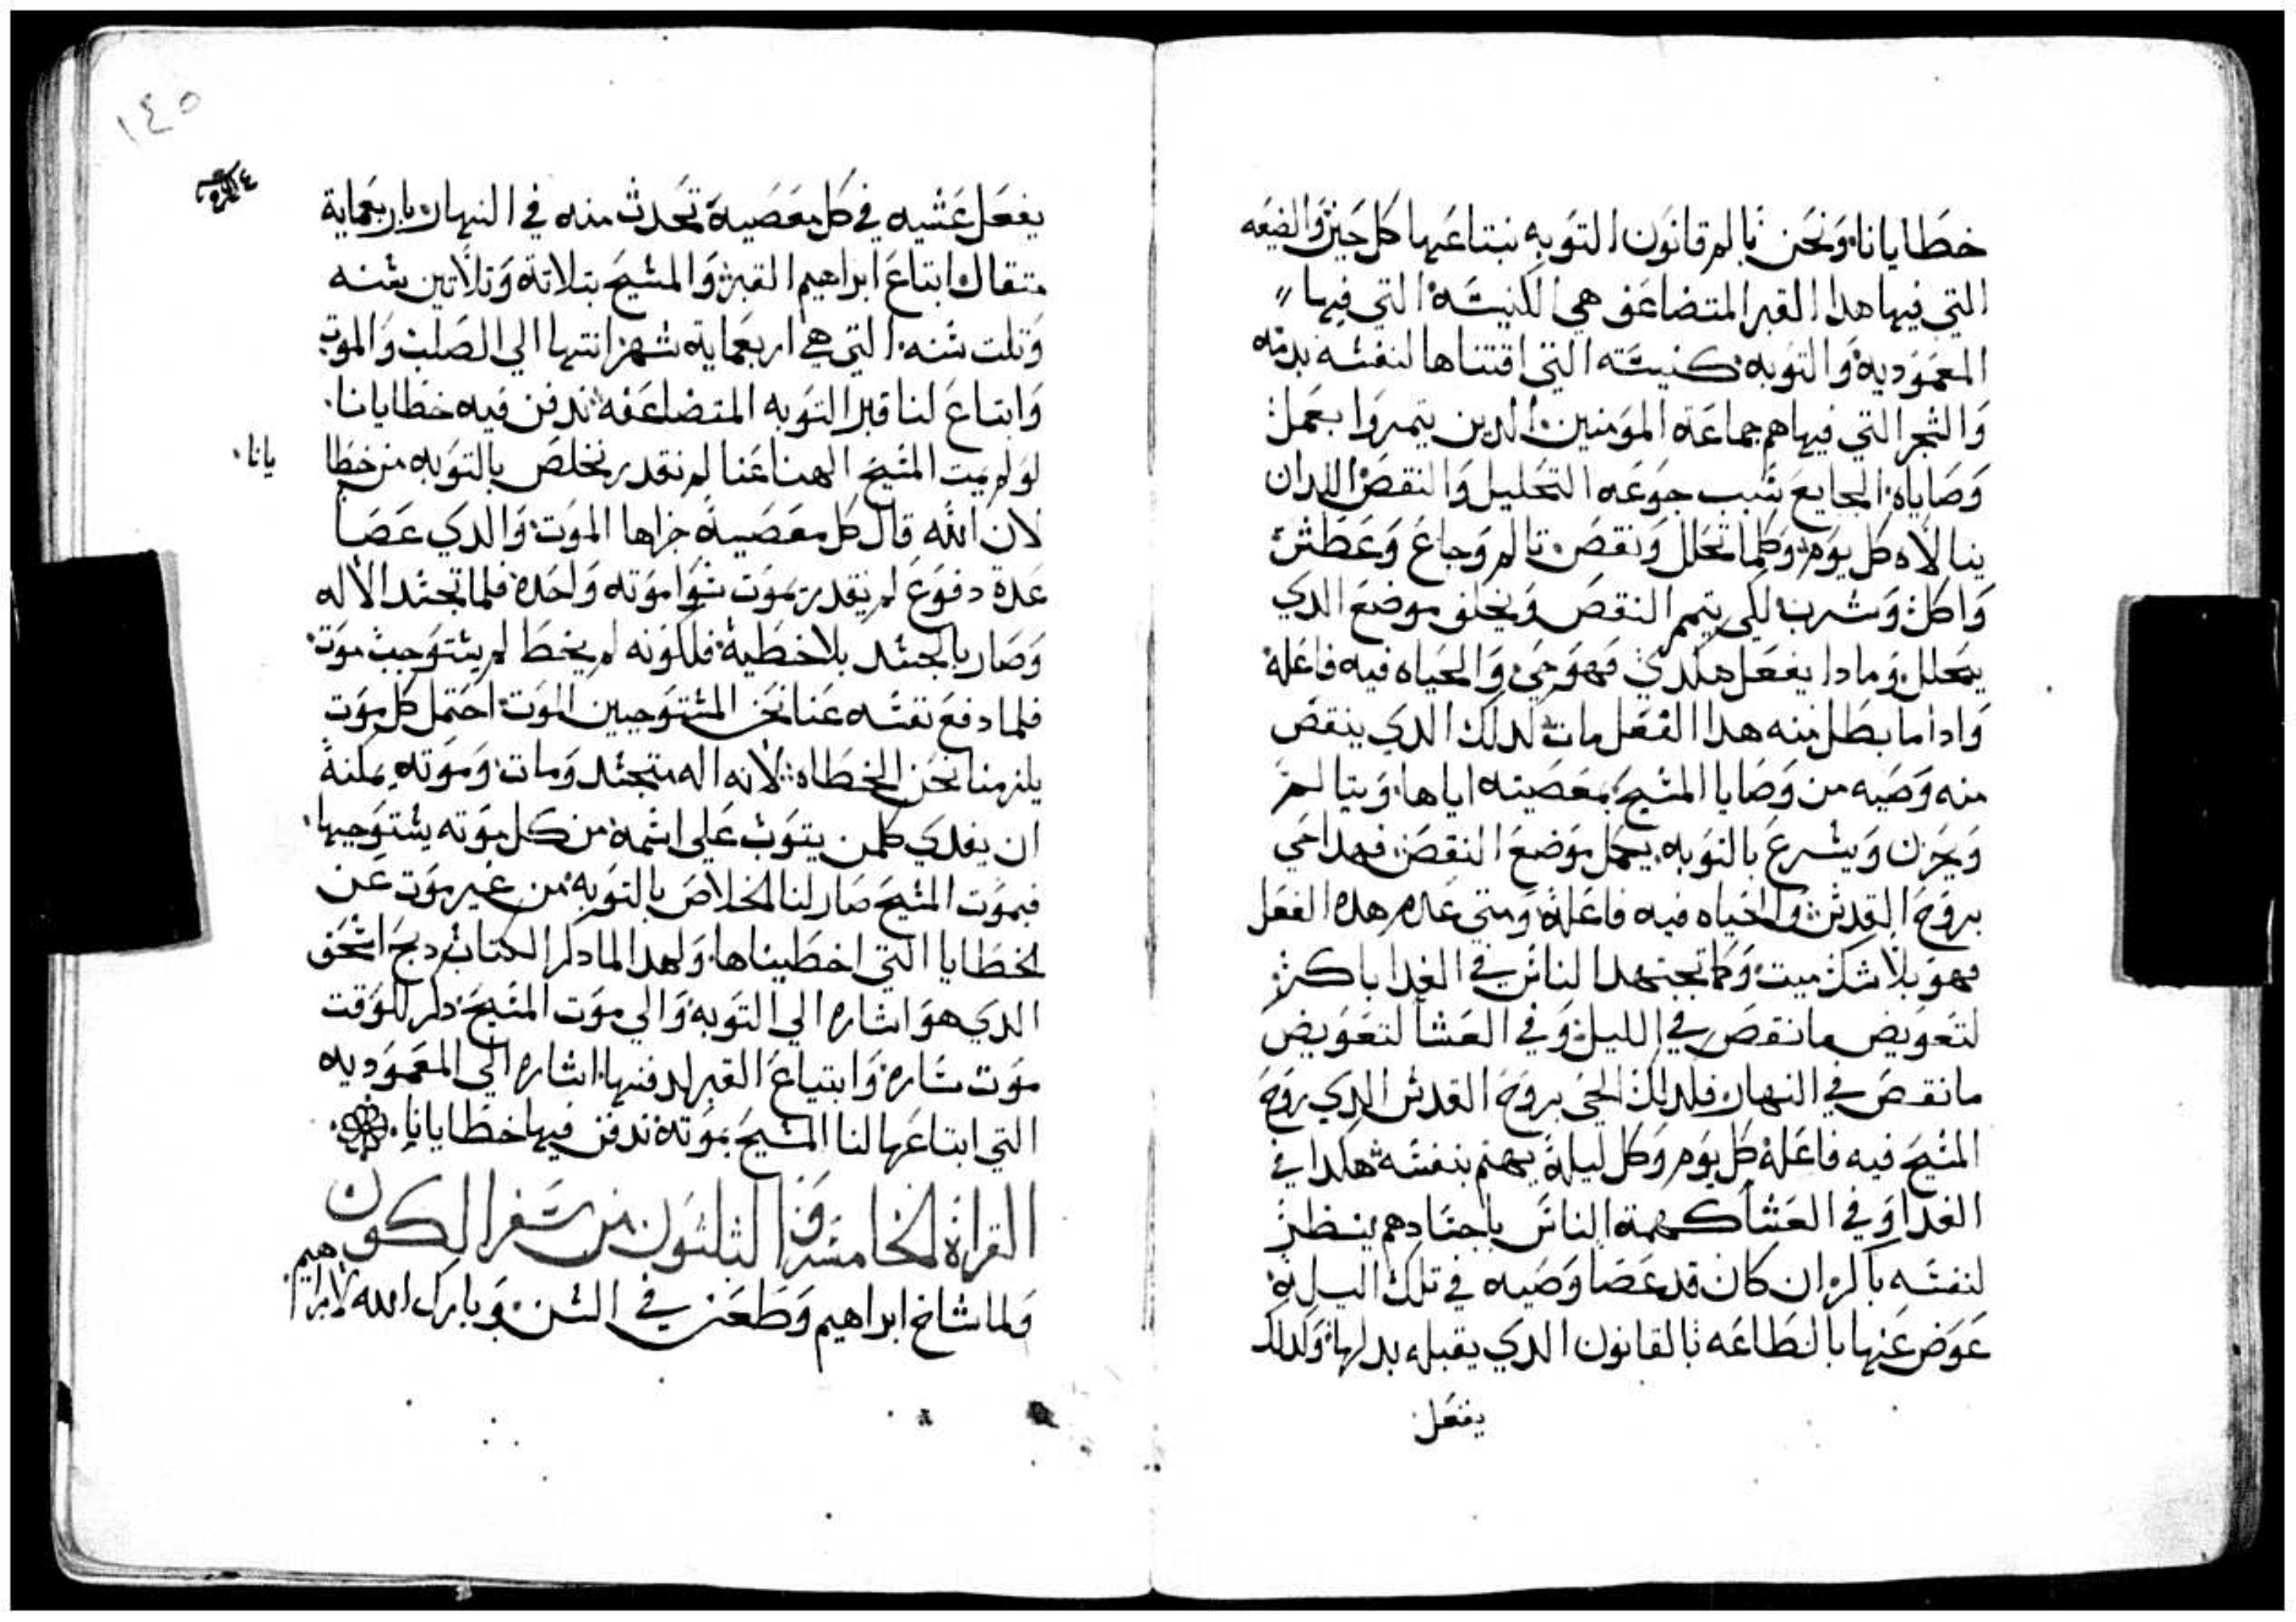 خطايانا ونحن بالم قانون التوبه نبتاعها كل حين والضيعه
التي فيها هدا القبر المتضاعف هي الكنيسة التي فيها
المعموديه والتوبه كنيسته التي اقتناها لنفسه بدمه
والشجر التي فيها هم جماعة المومنين الدين يتمروا بعمل
وصاياه الجايع سبب جوعه التحليل والنقص اللدان
ينالاه كل يوم وكلما تحلل ونقص تالم وجاع وعطش
واكل وشرب لكي يتمم النقص ويخلف موضع الدي
يتحلل وما دا يفعل هكدي فهو حي والحياه فيه فاعلة
وادا ما بطل منه هدا الفعل مات لدلك الدي ينقص
منه وصيه من وصايا المسيح بمعصيته اياها ويتالم
ويحزن ويسرع بالتوبه يكمل موضع النقص فهدا حي
بروح القدس والحياه فيه فاعلة ومتي عدم هده الفعل
فهو بلا شك ميت وكما تجتهد الناس في الغدا باكر
لتعويض ما نقص في الليل وفي العشا لتعويض
ما نقص في النهار فلدلك الحي بروح القدس الدي روح
المسيح فيه فاعلة كل يوم وكل ليلة يهتم بنفسه هكدا في
الغدا وفي العشا كهمة الناس باجسادهم ينظر
لنفسه باكر ان كان قد عصا وصيه في تلك الليله
عوض عنها بالطاعه بالقانون الدي يقبله بدلها وكدلك
يفعل
١٤٥
يفعل عشيه في كل معصية تحدث منه في النهار باربعماية
متقال ابتاع ابراهيم القبر والمسيح بتلاتة وتلاتين سنه
وتلت سنه التي هي اربعماية شهر انتها الي الصلب والموت
وابتاع لنا قبر التوبه المتضاعفه ندفن فيه خطايانا
لو لم يمت المسيح الهنا عنا لم نقدر نخلص بالتوبه من خطا
يانا
لان الله قال كل معصية جزاها الموت والدي عصا
عدة دفوع لم يقدر يموت سوا موته واحدة فلما تجسد الاله
وصار بالجسد بلا خطية فلكونه لم يخط لم يستوجب موت
فلما دفع نفسه عنا نحن المستوجبين الموت احتمل كل موت
يلزمنا نحن الخطاه لانه اله متجسد ومات وموته يمكنه
ان يفدي كلمن يتوب علي اسمه من كل موته يستوجبها
فبموت المسيح صار لنا الخلاص بالتوبه من غير موت عن
الخطايا التي اخطيناها ولهدا لما دكر الكتاب دبح اسحق
الدي هو اشاره الي التوبه والي موت المسيح دكر للوقت
موت ساره وابتياع القبر لدفنها اشاره الي المعموديه
التي ابتاعها لنا المسيح بموته ندفن فيها خطايانا
القراة الخامسة والثلثون من سفر الكون
ولما شاخ ابراهيم وطعن في السن وبارك الله لابراهيم